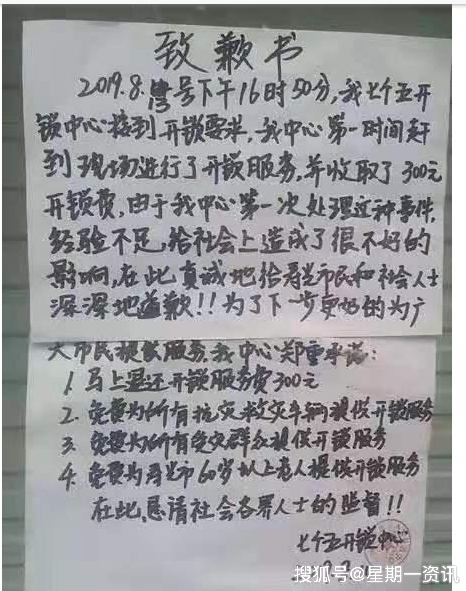 致歉书
2019.8. 号下午16时50分,我七个五开
锁中心接到开锁要求,我中心第一时间赶
到现场进行了开锁服务,并收取了300元
开锁费,由于我中心第一次处理这种事件,
经验不足,给社会上造成了很不好的
影响,在此真诚地给寿光市民和社会人士
深深地道歉!!为了下一步更好的为广
大市民提供服务,我中心郑重承诺:
1. 马上退还开锁服务费300元
2. 免费为所有抗灾救灾车辆提供开锁服务
3. 免费为所有受灾群众提供开锁服务
4. 免费为寿光市60岁以上老人提供开锁服务
在此,恳请社会各界人士的监督!!
七个五开锁中心
搜狐号@星期一资讯